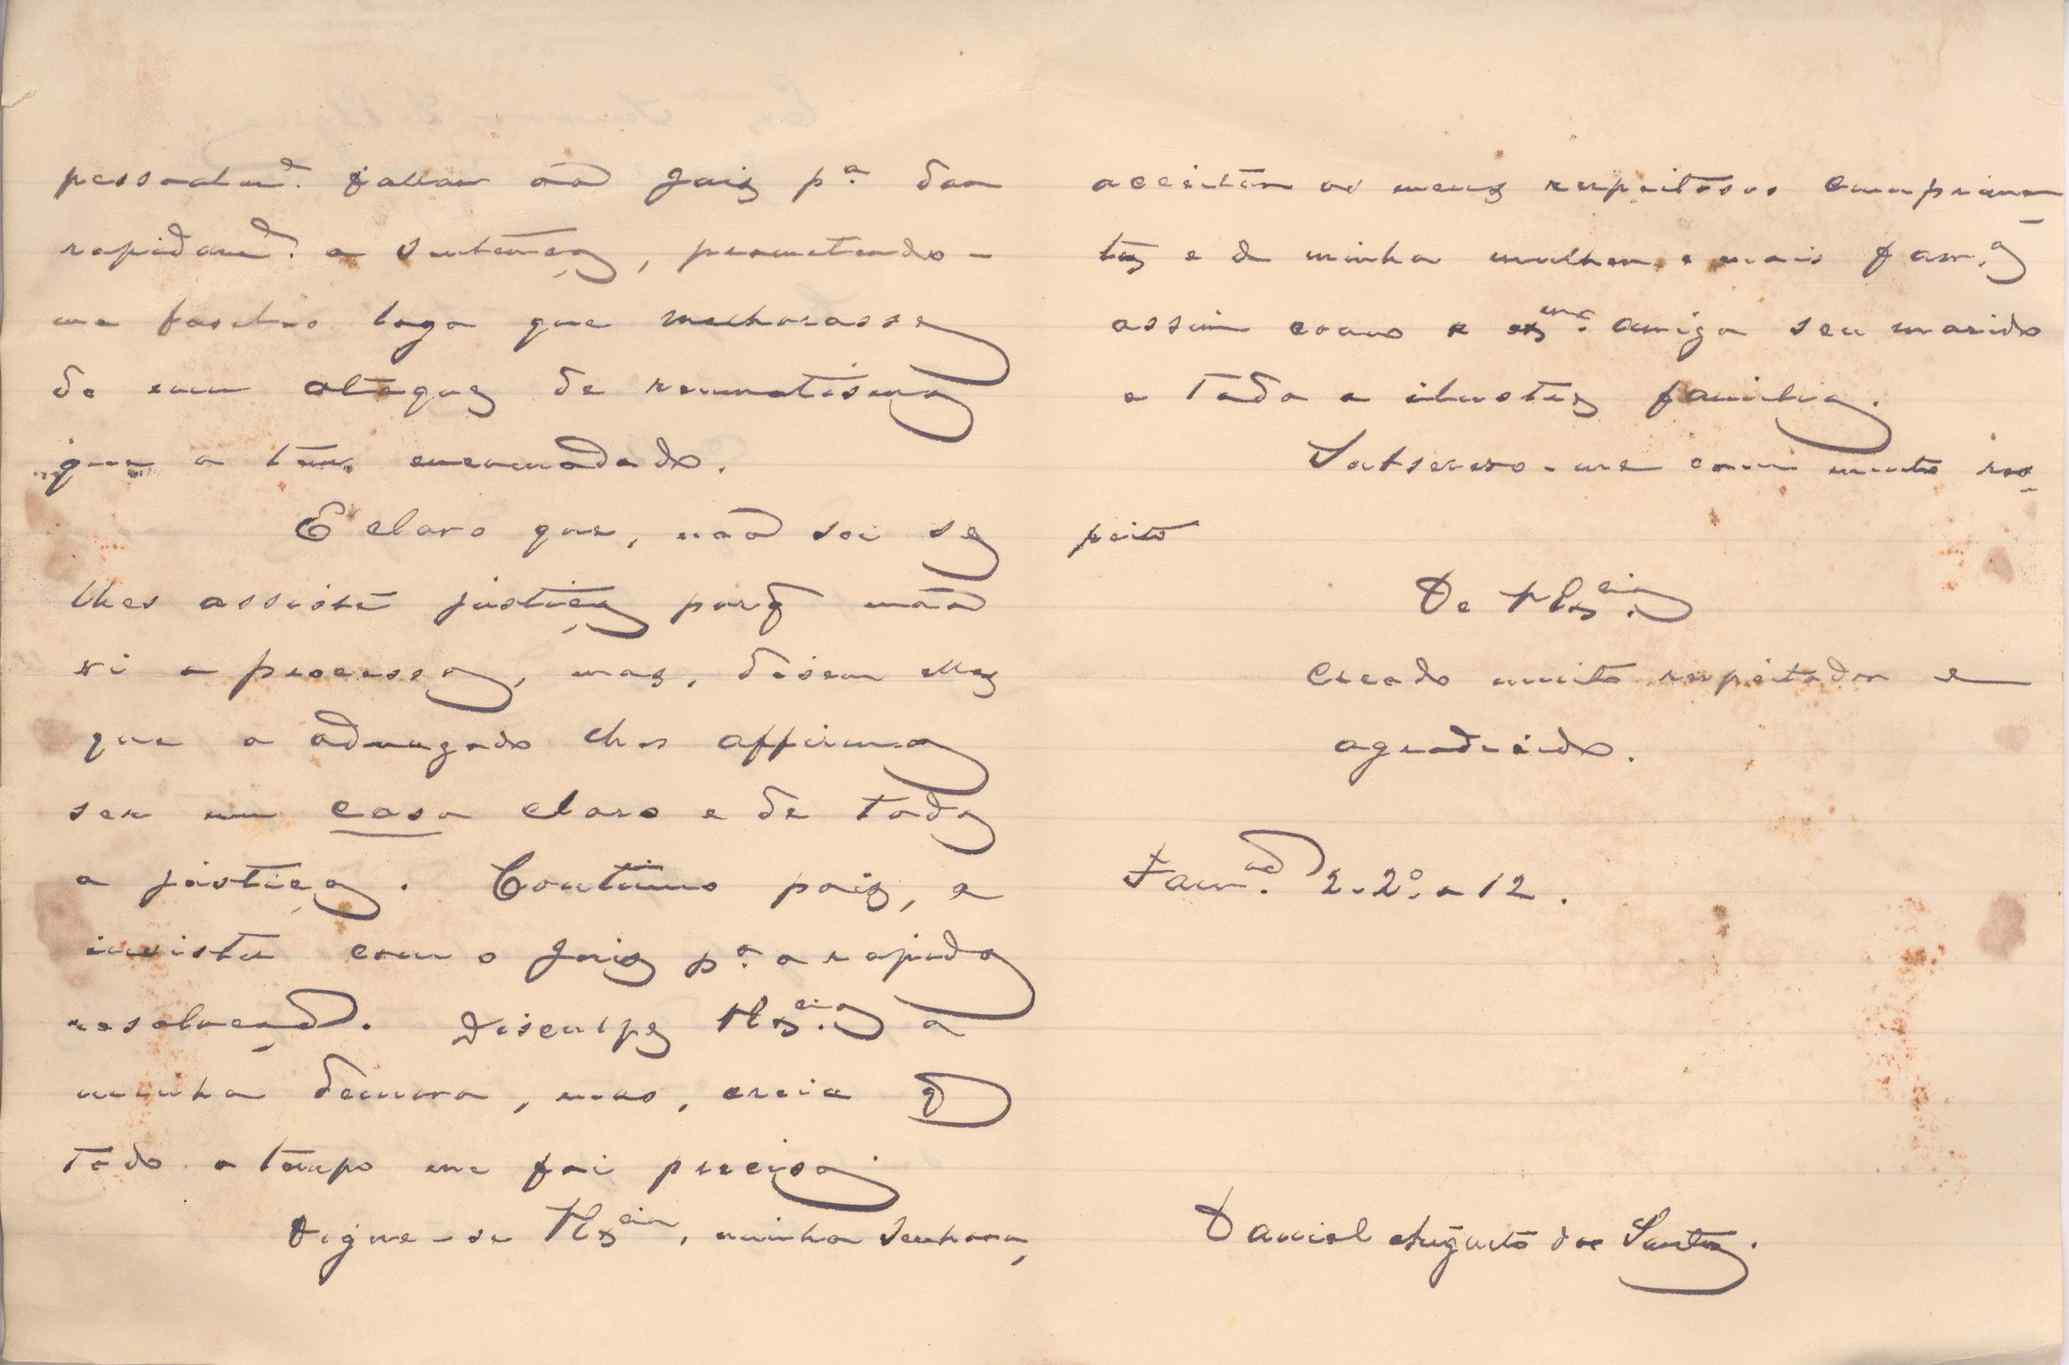 pessoalm.e fallar ao Juiz p.a dar
rapidam.e a sentença, prometendo-
me fasel-o logo que melhorasse
de um ataque de reumatismo
que o tem encomodado.
E claro que, não sei se
lhes assiste justiça porq não
vi o processo, mas, disem elles
que o advogado lhes affirma
ser um caso claro e de toda
a justiça. Continúo pois, a
insistir com o Juiz p.a a rapida
resolução. Disculpe V Ex.cia a
minha demora, mas, creia q
todo o tempo me foi preciso.
Digne-se V Ex.cia, minha Senhora,
acceitar os meus respeitosos cumprimen-
tos e de minha mulher e mais fam.a
assim como o ex.mo amigo seu marido
e toda a ilustre familia.
Subscrevo-me com muito res-
peito
De V Ex.cia
Creado muito respeitador e
agradecido.
2-2º-12.
Daniel Augusto dos Santos.